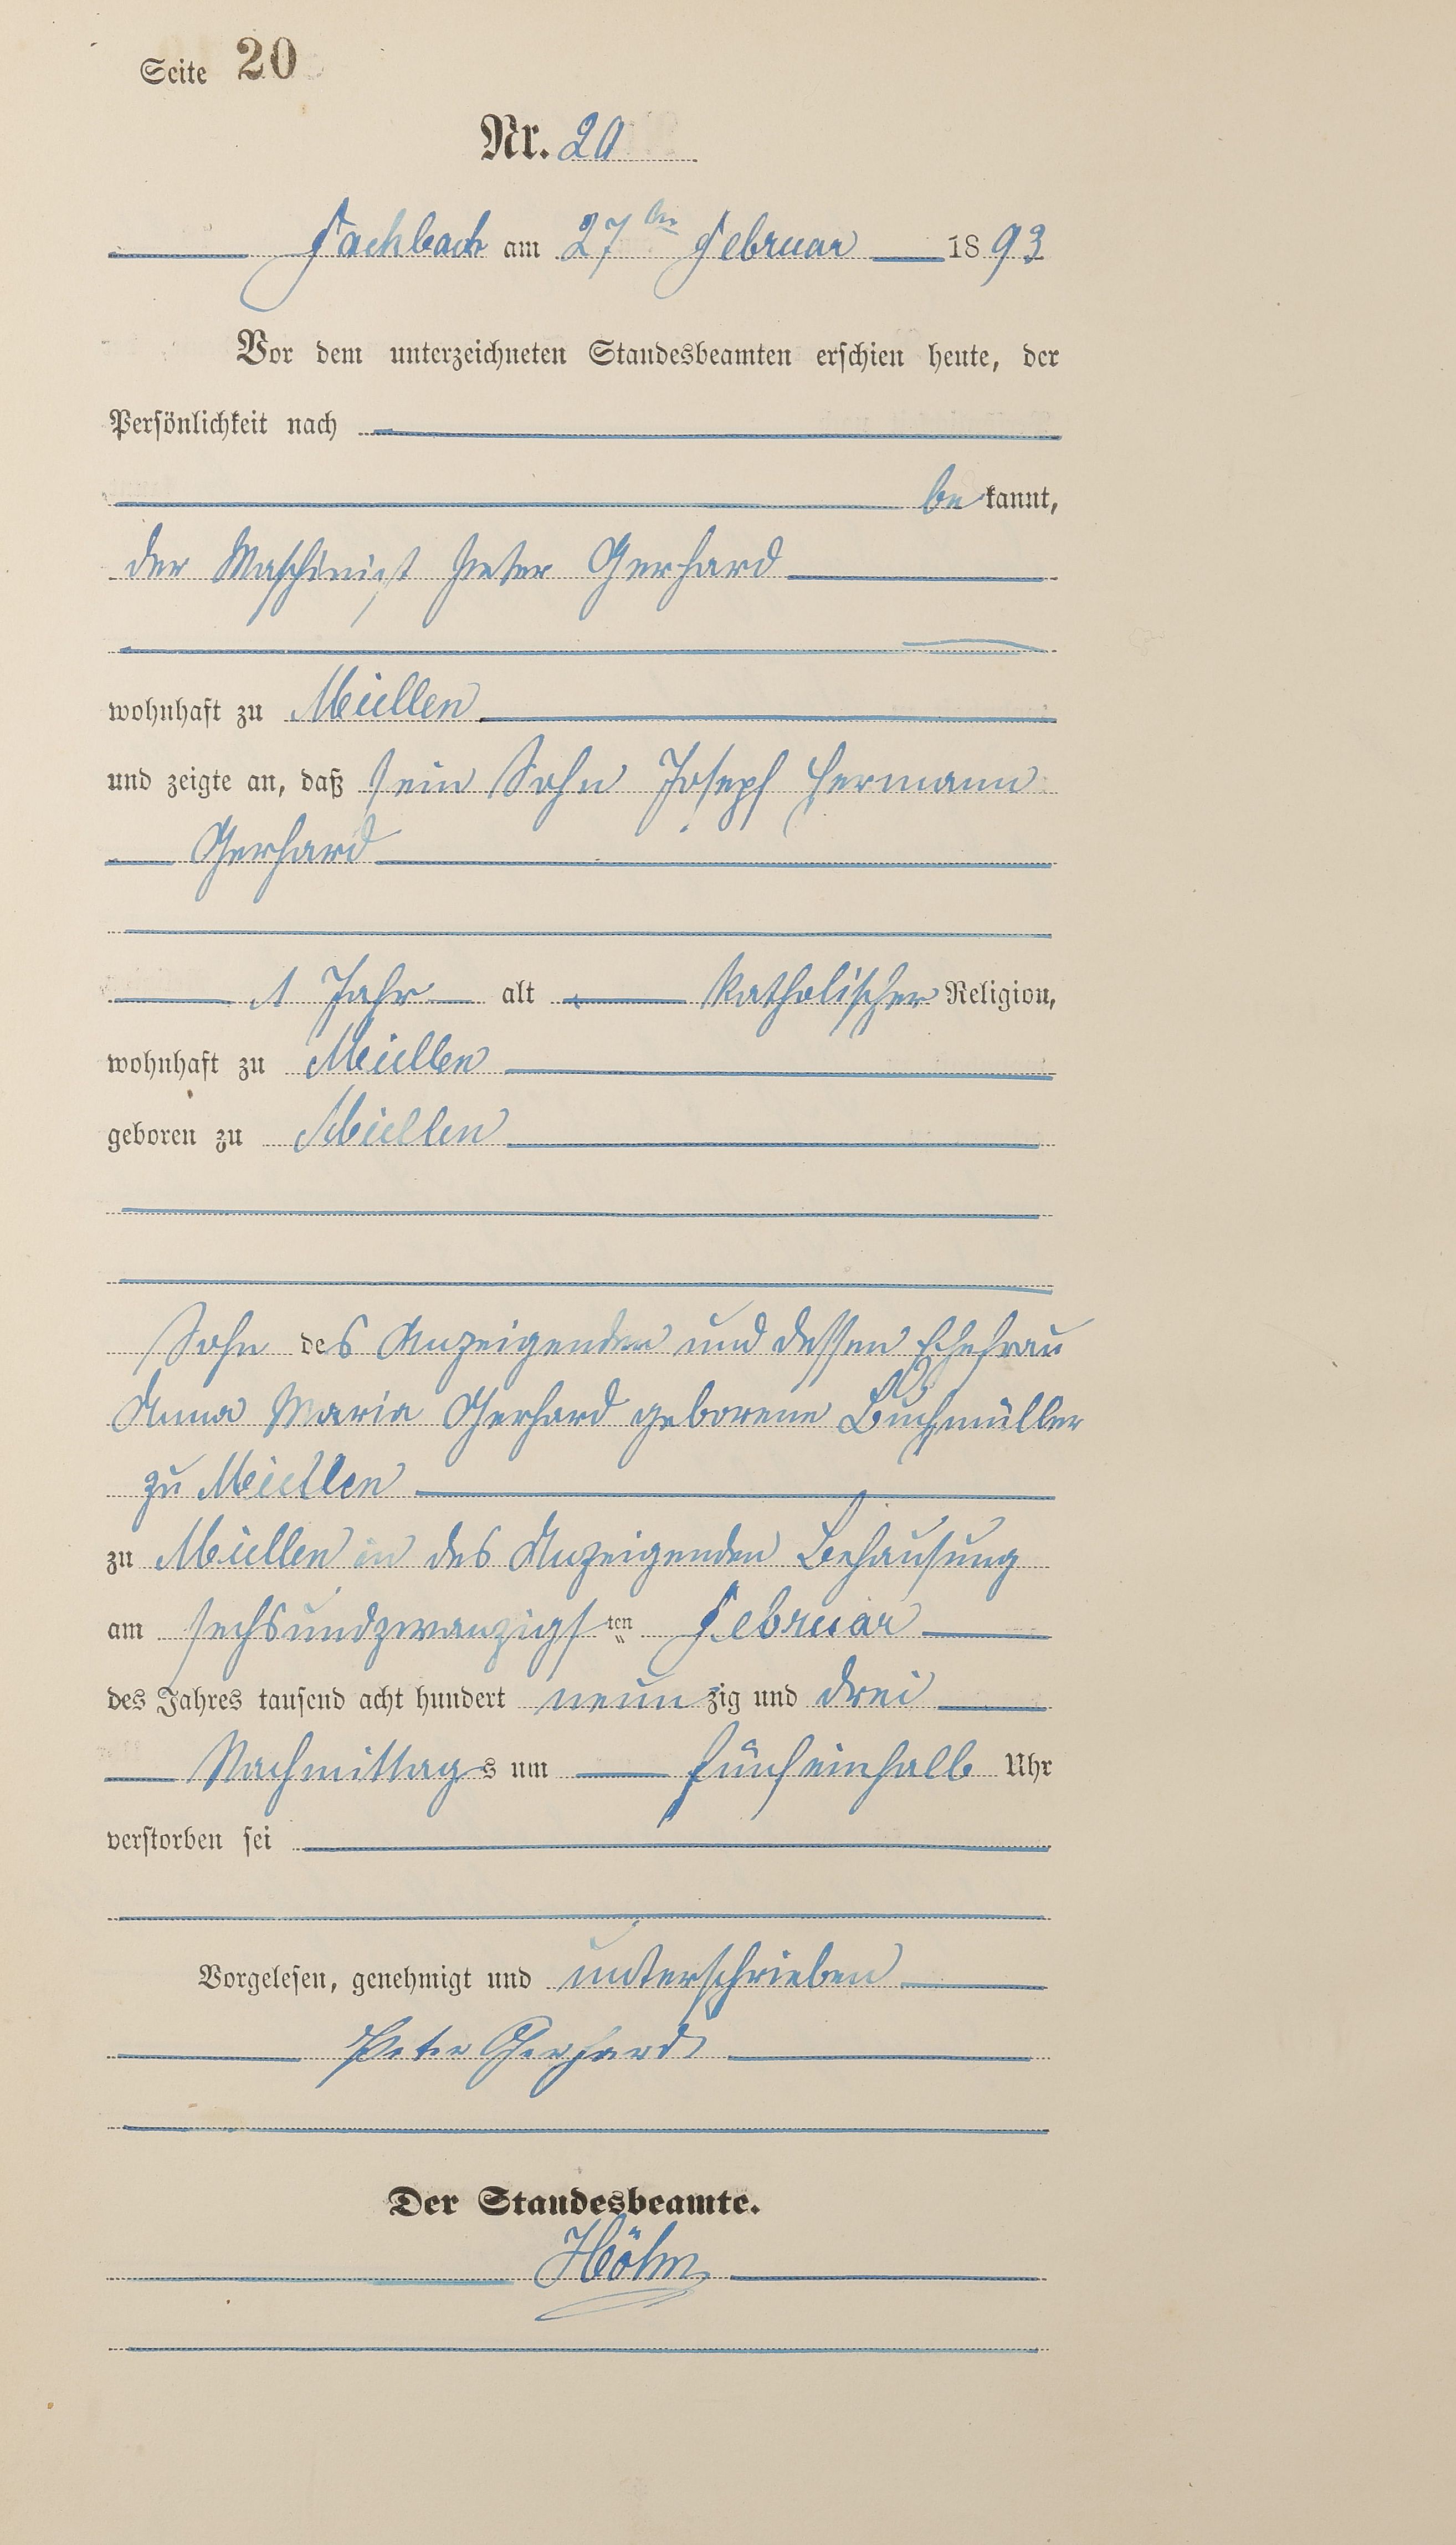 Seite 20
Nr. 20
Fachbach am 27ten Februar 1893
Vor dem unterzeichneten Standesbeamten erschien heute, der
Persönlichkeit nach
be kannt,
der Maschinist Peter Gerhard
wohnhaft zu Miellen
und zeigte an, daß sein Sohn Joseph Hermann
Gerhard
1 Jahr alt katholischer Religion,
wohnhaft zu Miellen
geboren zu Miellen
Sohn des Anzeigenden und dessen Ehefrau
Anna Maria Gerhard geborene Buchmüller
zu Miellen
zu Miellen in des Anzeigenden Behausung
am sechsundzwanzigsten Februar
des Jahres tausend acht hundert neunzig und drei
Nachmittags um fünfeinhalb Uhr
verstorben sei
Vorgelesen, genehmigt und unterschrieben
Peter Gerhard
Der Standesbeamte.